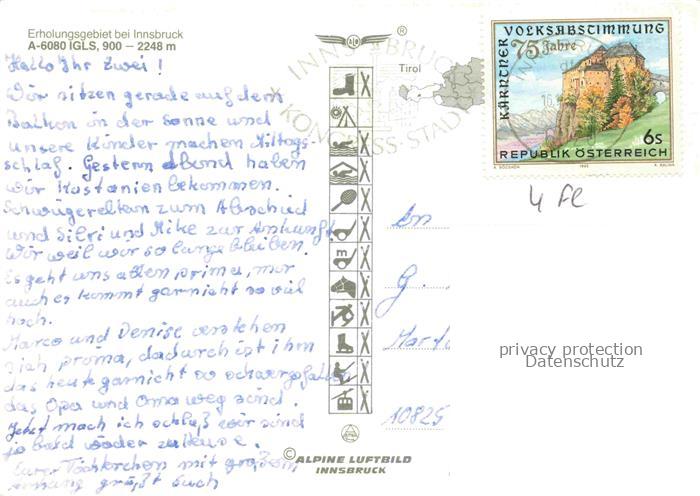 Erholungsgebiet bei Innsbruck
A-6080 IGLS, 900 — 2248 m
Hallo Ihr zwei!
Wir sitzen gerade auf dem
Balkon in der Sonne und
unsere Kinder machen Mittags-
schlaf. Gestern abend haben
wir Kastanien bekommen.
Schwiegereltern zum Abschied
und Silvi und Mike zur Ankunft.
Wir weil wir so lange bleiben.
Es geht uns allen prima, nur
auch es kommt garnicht so viel
hoch.
Marco und Denise verstehen
sich prima, dadurch ist ihm
das heute garnicht so schwer gefallen
das Opa und Oma weg sind.
Jetzt mach ich schluß wir sind
ja bald wieder zuhause.
Euer Töchterchen mit großem
Anhang grüßt Euch
INNSBRUCK
KONGRESS-STADT
Tirol
m
© ALPINE LUFTBILD
INNSBRUCK
KÄRNTNER VOLKSABSTIMMUNG
75 Jahre
6s
REPUBLIK ÖSTERREICH
4 Fl
An
G.
10825
privacy protection
Datenschutz